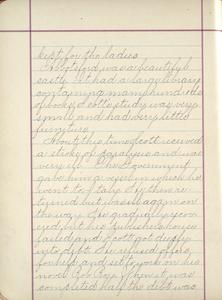 kept for the ladies.
Abbotsford was a beautiful
castle. It had a large library
containing many hundreds
of books. Scott's study was very
small and had very little
furniture.
About this time Scott received
a stroke of paralysis and was
very sick. The government
gave him a vessel in which he
went to Italy. Here he was
on
the way. He gradually recov-
ered but his publishing house
failed and Scott got deeply
into debt. He
and set to work on his
novel When it was
completed half the debt was